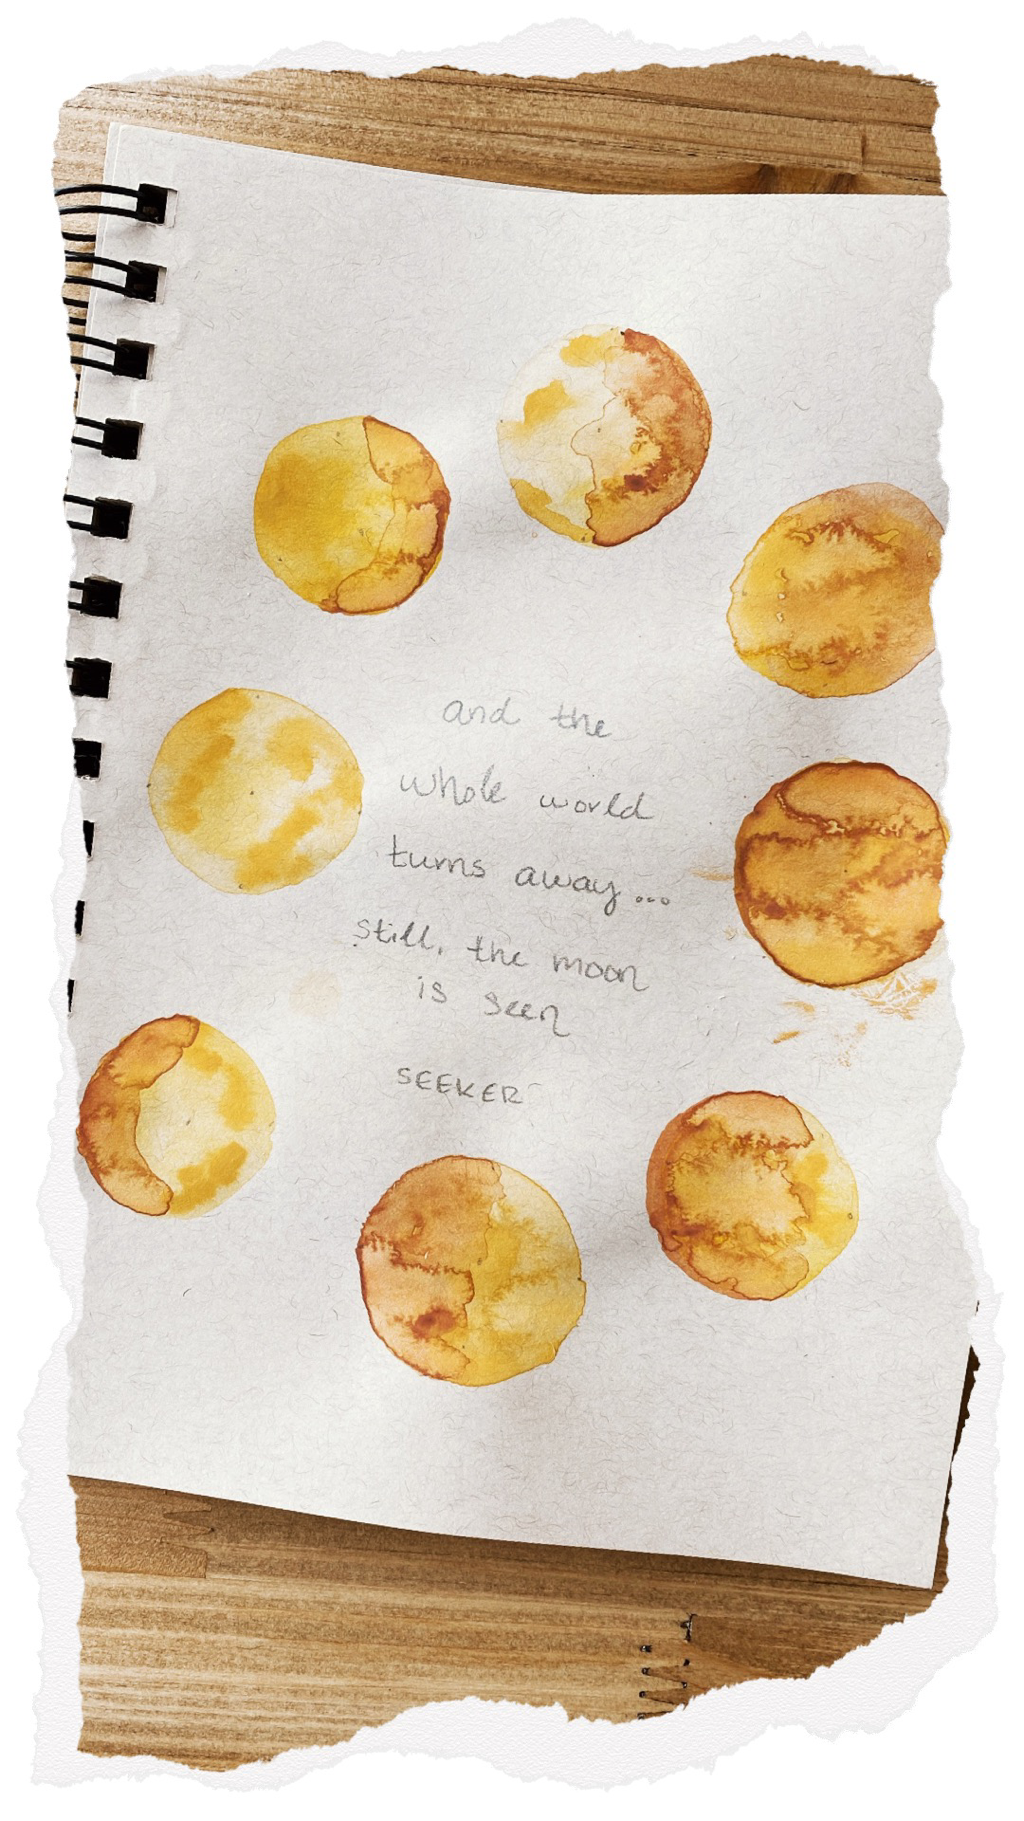 and the
whole world
turns away...
still, the moon
is seen
SEEKER